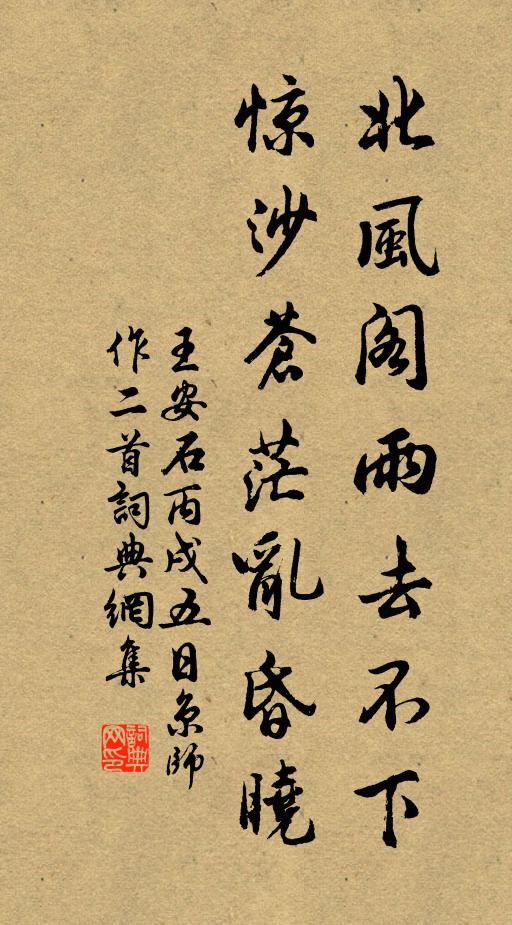 北風閣雨去不下
惊沙蒼茫亂昏曉
王安石丙戌五日京師
作二首詞典網集
詞典
网印